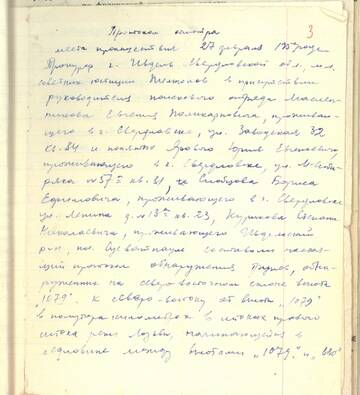 3
Протокол осмотра
места происшествия 27 февраля 195 года
Прокурор г. Ивдель Свердловской обл., мл.
советник юстиции Темпалов в присутствии
руководителя поискового отряда Маслен-
никова Евгения Поликарповича, проживаю-
щего в г. Свердловске, ул. Заводская 32
кв. 84 и понятых Ярового Юрия Евгеньевича,
проживающего в г. Свердловске, ул. М-Сиби-
ряка № 57 кв. 81, Слобцова Бориса
Ефимовича, проживающего в г. Свердловске
ул. Ленина д. № 13 кв. 23, Куликова Степана
Николаевича, проживающего Ивдельский
р-н, пос. составили настоя-
щий протокол обнаружения трупов, обна-
ружены на северо-восточном склоне высоты
"1079". К северо-востоку от высоты "1079"
в полутора километрах в истоках правого
истока реки Лозьвы, начинающейся в
седловине между высотами "1079" и